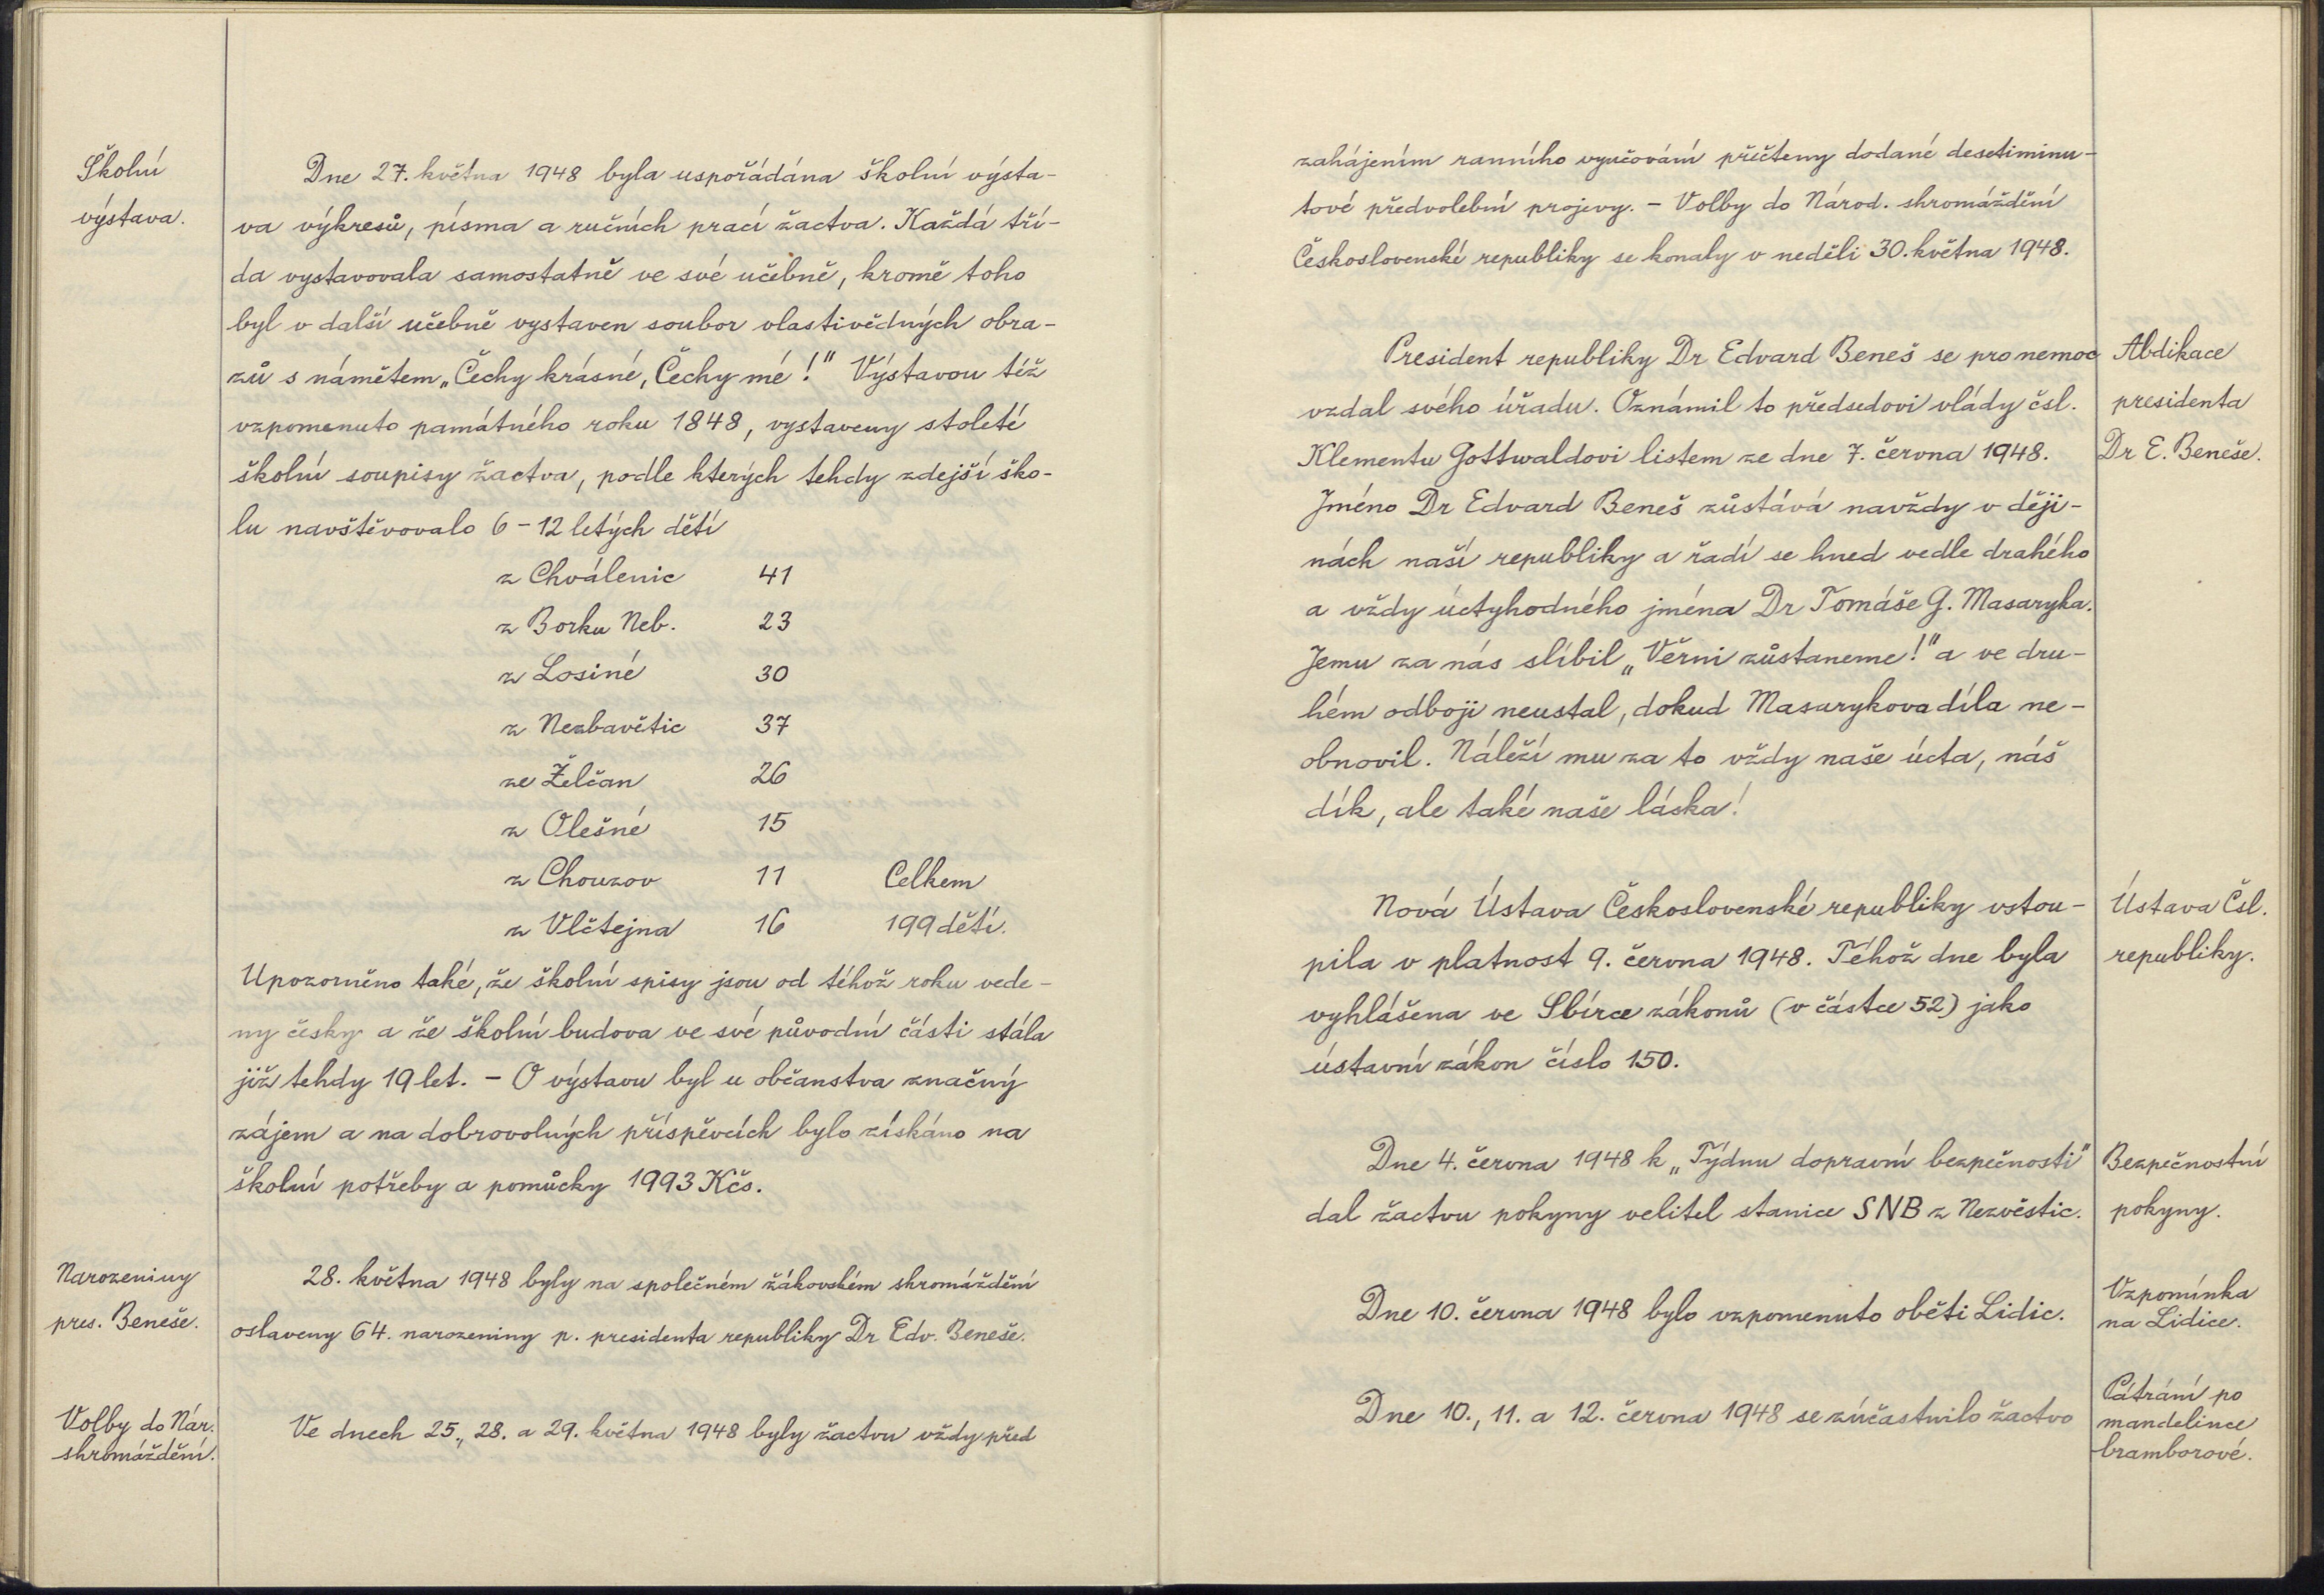 Školní
výstava.
Dne 27. května 1948 byla uspořádána školní výsta-
va výkresů, písma a ručních prací žactva. Každá tří-
da vystavovala samostatně ve své učebně, kromě toho
byl v další učebně vystaven soubor vlastivědných obra-
zů s námětem „Čechy krásné, Čechy mé!" Výstavou též
vzpomenuto památného roku 1848, vystaveny stoleté
školní soupisy žactva, podle kterých tehdy zdejší ško-
lu navštěvovalo 6-12 letých dětí
z Chválenic 41
z Borku Neb. 23
z Losiné 30
z Nezbavětic 37
ze Želčan 26
z Olešné 15
z Chouzov 11 Celkem
z Vlčtejna 16 199 dětí.
Upozorněno také, že školní spisy jsou od téhož roku vede-
ny česky a že školní budova ve své původní části stála
již tehdy 19 let. - O výstavu byl u občanstva značný
zájem a na dobrovolných příspěvcích bylo získáno na
školní potřeby a pomůcky 1993 Kčs.
Narozeniny
pres. Beneše.
28. května 1948 byly na společném žákovském shromáždění
oslaveny 64. narozeniny p. presidenta republiky Dr Edv. Beneše.
Volby do Nár.
shromáždění.
Ve dnech 25., 28. a 29. května 1948 byly žactvu vždy před
zahájením ranního vyučování přečteny dodané desetiminu-
tové předvolební projevy. - Volby do Národ. shromáždění
Československé republiky se konaly v neděli 30. května 1948.
President republiky Dr Edvard Beneš se pro nemoc
vzdal svého úřadu. Oznámil to předsedovi vlády čsl.
Klementu Gottwaldovi listem ze dne 7. června 1948.
Jméno Dr Edvard Beneš zůstává navždy v ději-
nách naší republiky a řadí se hned vedle drahého
a vždy úctyhodného jména Dr Tomáše G. Masaryka.
Jemu za nás slíbil „Věrni zůstaneme!" a ve dru-
hém odboji neustal, dokud Masarykova díla ne-
obnovil. Náleží mu za to vždy naše úcta, náš
dík, ale také naše láska!
Abdikace
presidenta
Dr E. Beneše.
Nová Ústava Československé republiky vstou-
pila v platnost 9. června 1948. Téhož dne byla
vyhlášena ve Sbírce zákonů (v částce 52) jako
ústavní zákon číslo 150.
Ústava Čsl.
republiky.
Dne 4. června 1948 k „Týdnu dopravní bezpečnosti"
dal žactvu pokyny velitel stanice SNB z Nezvěstic.
Bezpečnostní
pokyny.
Dne 10. června 1948 bylo vzpomenuto oběti Lidic.
Vzpomínka
na Lidice.
Dne 10., 11. a 12. června 1948 se zúčastnilo žactvo
Pátrání po
mandelince
bramborové.